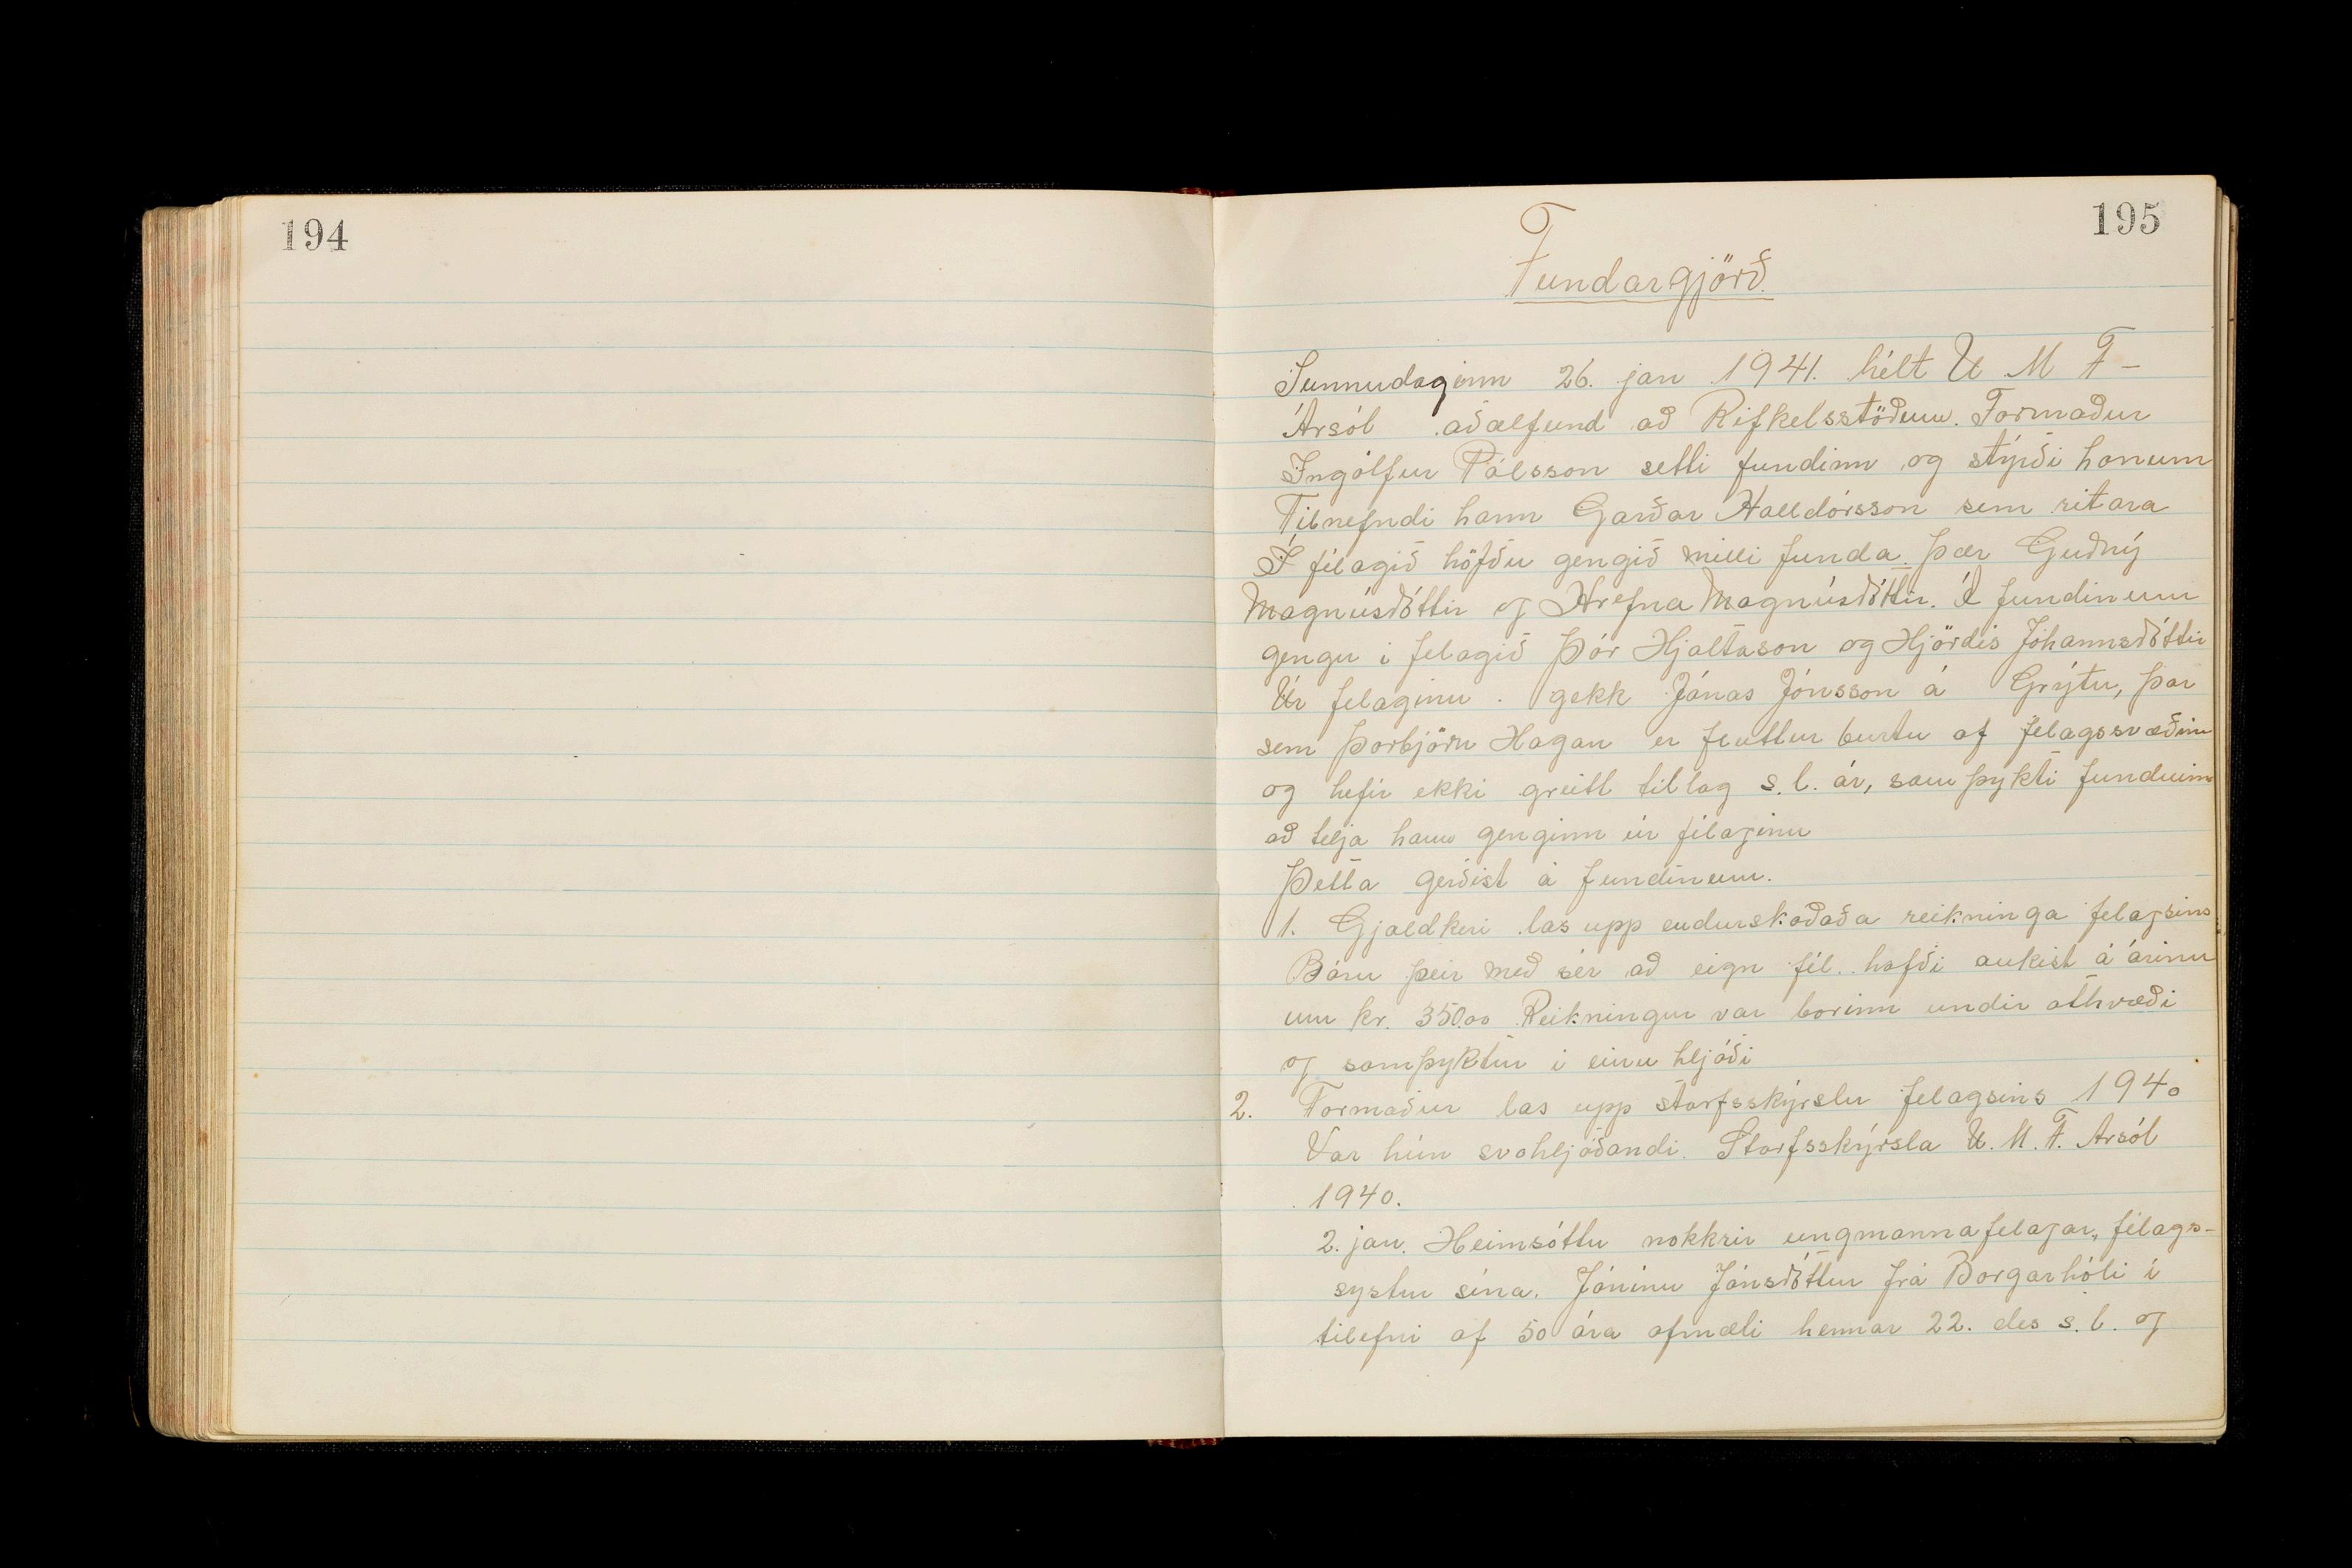 194
195
Fundargjörð.
Sunnudaginn 26. jan 1941. hélt U M F -
Ársól aðalfund að Rifkelsstöðum. Formaður
Ingólfur Pálsson setti fundinn og stýrði honum
Tilnefndi hann Garðar Halldórsson sem ritara
Í félagið höfðu gengið milli funda. Þær Guðný
Magnúsdóttir og Hrefna Magnúsdóttir. Á fundinum
gengu i felagið Þór Hjaltason og Hjördís Jóhannsdóttir
Úr felaginu . gekk Jónas Jónsson á Grýtu, þar
sem Þorbjörn Hagan er fluttur burtu af felagssvæðinu
og hefir ekki greitt tillag s.l. ár, samþykti fundurinn
að telja hann genginn úr félaginu
Þetta gerðist á fundinum.
1. Gjaldkeri las upp endurskoðaða reikninga felagsins
Báru þeir með sér að eign fél. hafði aukist á árinu
um kr. 350.00 Reikningur var borinn undir athvæði
og samþyktur i einu hljóði
2. Formaður las upp starfsskýrslu felagsins 1940
Var hún svohljóðandi. Starfsskýrsla U. M. F. Arsól
1940.
2. jan. Heimsóttu nokkrir ungmannafelagar, félags-
systur sína. Jónínu Jónsdóttur frá Borgarhóli í
tilefni af 50 ára afmæli hennar 22. des s.l. og